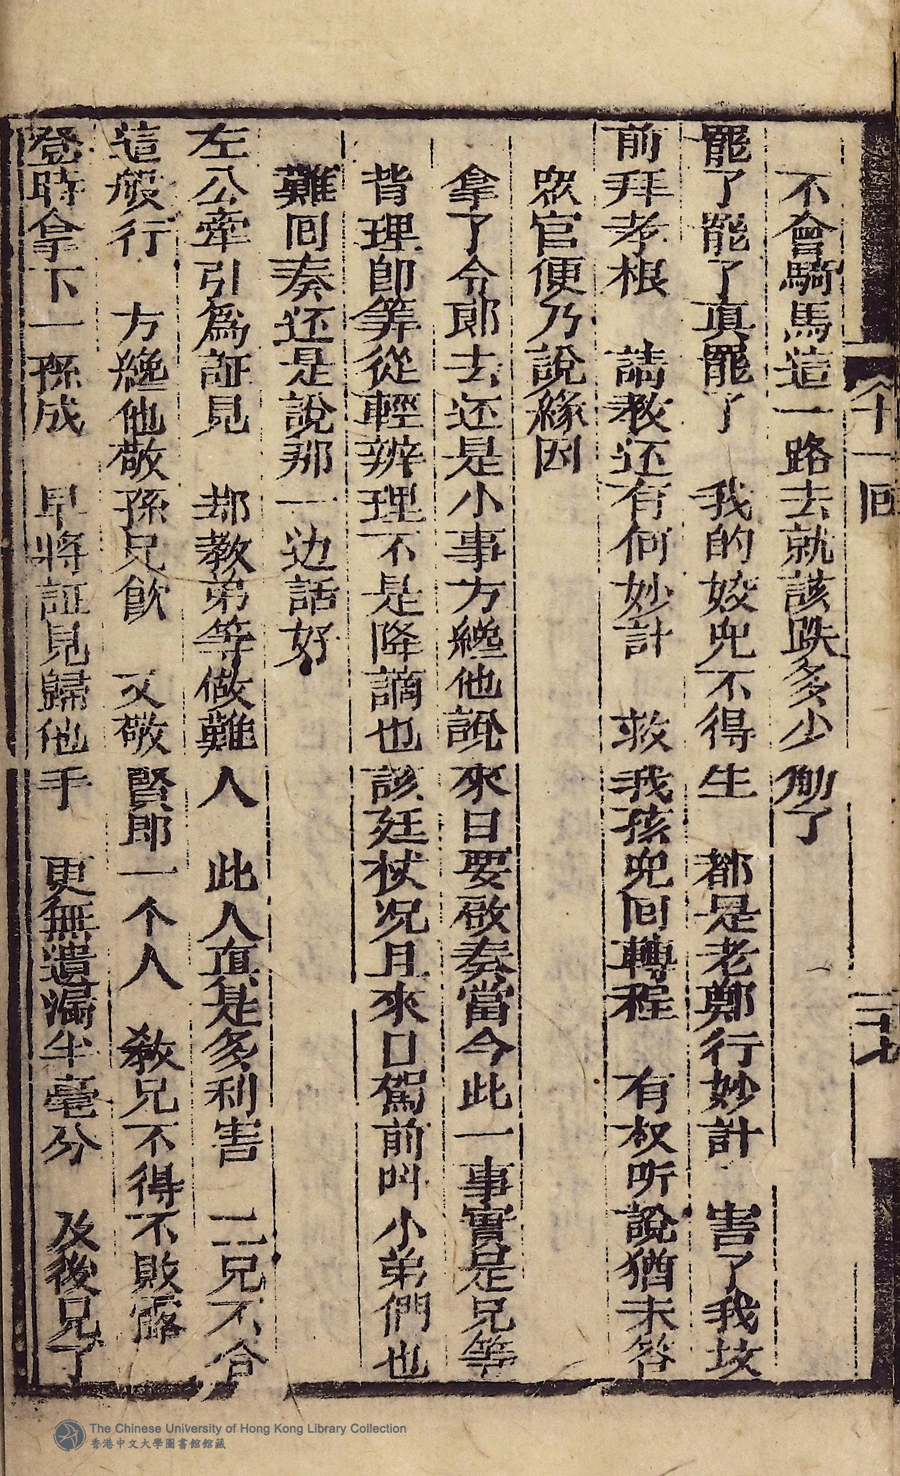 不會騎馬這一路去就該跌多少觔了
罷了罷了真罷了 我的姣児不得生 都是老鄭行妙計 害了我坟
前拜孝根 請教还有何妙計 救我孩児囘轉程 有权听說猶未答
眾官便乃說緣因
拿了令郎去还是小事方纔他説來日要啟奏當今此一事實是兄等
背理即筭從輕辨理不是降謫也該廷杖况且來日駕前叫小弟們也
難囘奏还是說那一边話好
左公牽引為証見 却教弟等做難人 此人真是多利害 二兄不合
這般行 方纔他敬孫兄飲 又敬賢郎一个人 教兄不得不敗露
登時拿下一孫成 早將証見歸他手 更無遺漏半毫分 及後兄了
十一回
三十七
The Chinese University of Hong Kong Library Collection
香港中文大學圖書館館藏